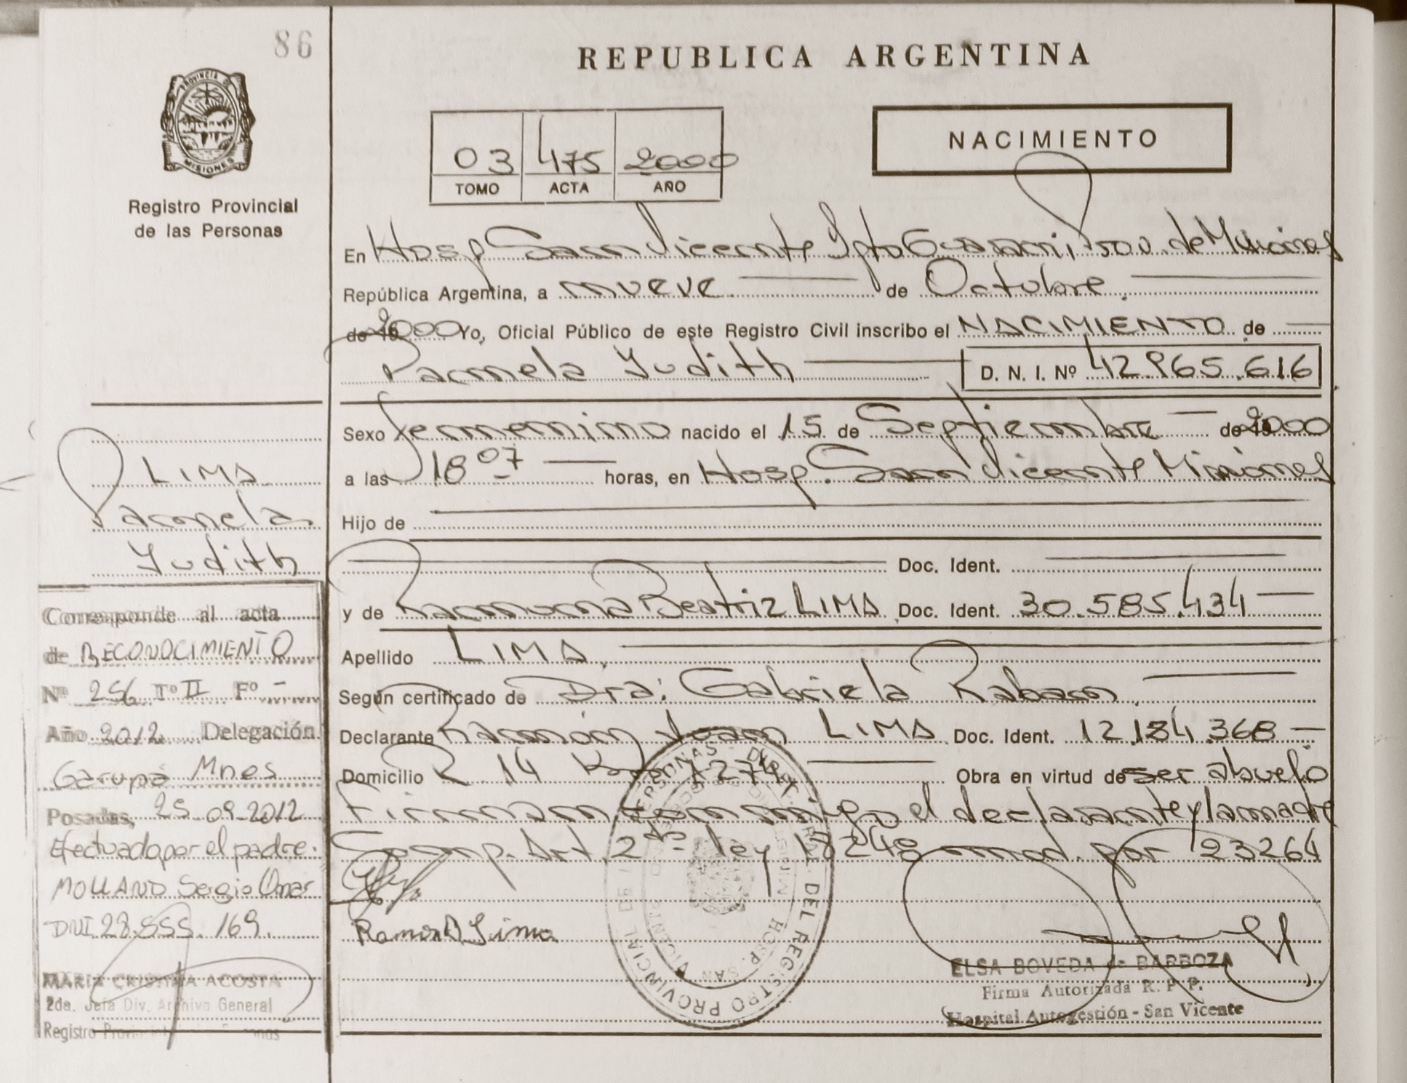 86
REPUBLICA ARGENTINA
PROVINCIA DE
MISIONES
Registro Provincial
de las Personas
03 475 2000
TOMO ACTA AÑO
NACIMIENTO
En Hosp San Vicente Dpto Guarani, Prov. de Misiones
República Argentina, a nueve de Octubre
de 2000 Yo, Oficial Público de este Registro Civil inscribo el NACIMIENTO de
Pamela Judith D. N. I. Nº 42.965.616
Sexo Femenino nacido el 15 de Septiembre de 2000
a las 18 07 horas, en Hosp. San Vicente Misiones
Hijo de
Doc. Ident.
y de Ramona Beatriz LIMA Doc. Ident. 30.585.434
Apellido LIMA,
Según certificado de Dra: Gabriela
Declarante Ramón Juan LIMA Doc. Ident. 12.184.368
Domicilio R 14 Km 1274 Obra en virtud de ser abuelo
Firman conmigo el declarante y la madre
Comp. Art. 2 ley 18248 mod. por 23264
Ramon Lima
ELSA BOVEDA de BARBOZA
Firma Autorizada R. P. P.
Hospital Autogestión - San Vicente
LIMA
Pamela
Judith
Corresponde al acta
de RECONOCIMIENTO
Nº 256 Tº II Fº -
Año 2012 Delegación
Garupá Mnes
Posadas, 25-09-2012
Efectuado por el padre.
MOLLAND Sergio Omar
DNI 28.555.169.
MARIA CRISTINA ACOSTA
2da. Jefa Div. Archivo General
Registro